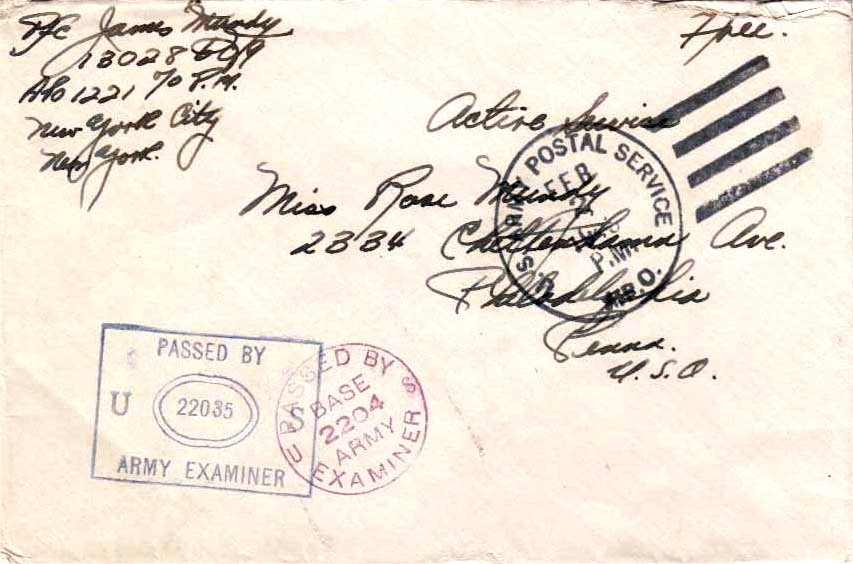 Pfc James Mundy
13028
APO 1221 % P.M.
New York City
New York.
Free.
Active Service
Miss Rose Mundy
2334 Cheltenham Ave.
Philadelphia
Penna.
U.S.A.
U.S. ARMY POSTAL SERVICE
FEB
P.M.
A.P.O.
PASSED BY
U 22035 S
ARMY EXAMINER
PASSED BY
BASE
2204
ARMY
EXAMINER
U S